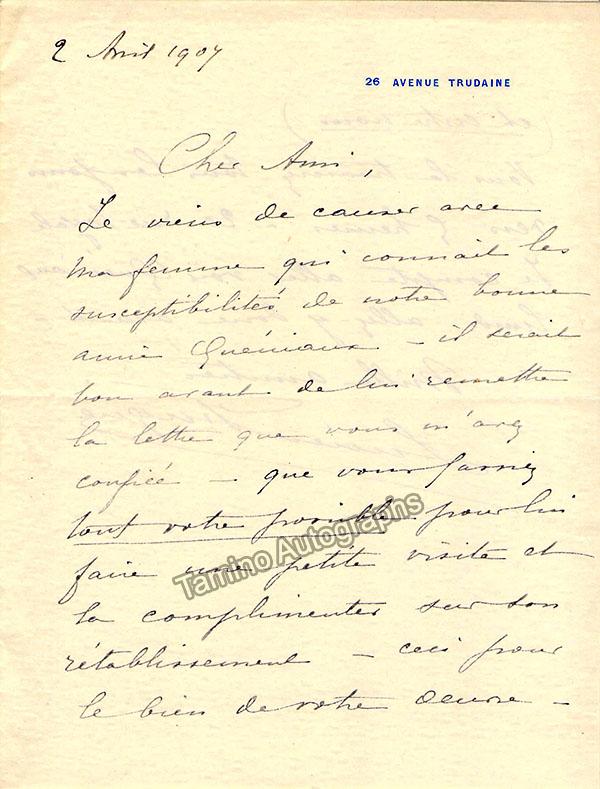 2 Avril 1907
26 AVENUE TRUDAINE
Cher Ami,
Je viens de causer avec
ma femme qui connait les
susceptibilités de notre bonne
amie Quéniaux – il serait
bon avant de lui remettre
la lettre que vous m'avez
confiée – que vous fassiez
tout votre possible pour lui
faire une petite visite et
la complimenter sur son
rétablissement – ceci pour
le bien de votre oeuvre –
Tamino Autographs